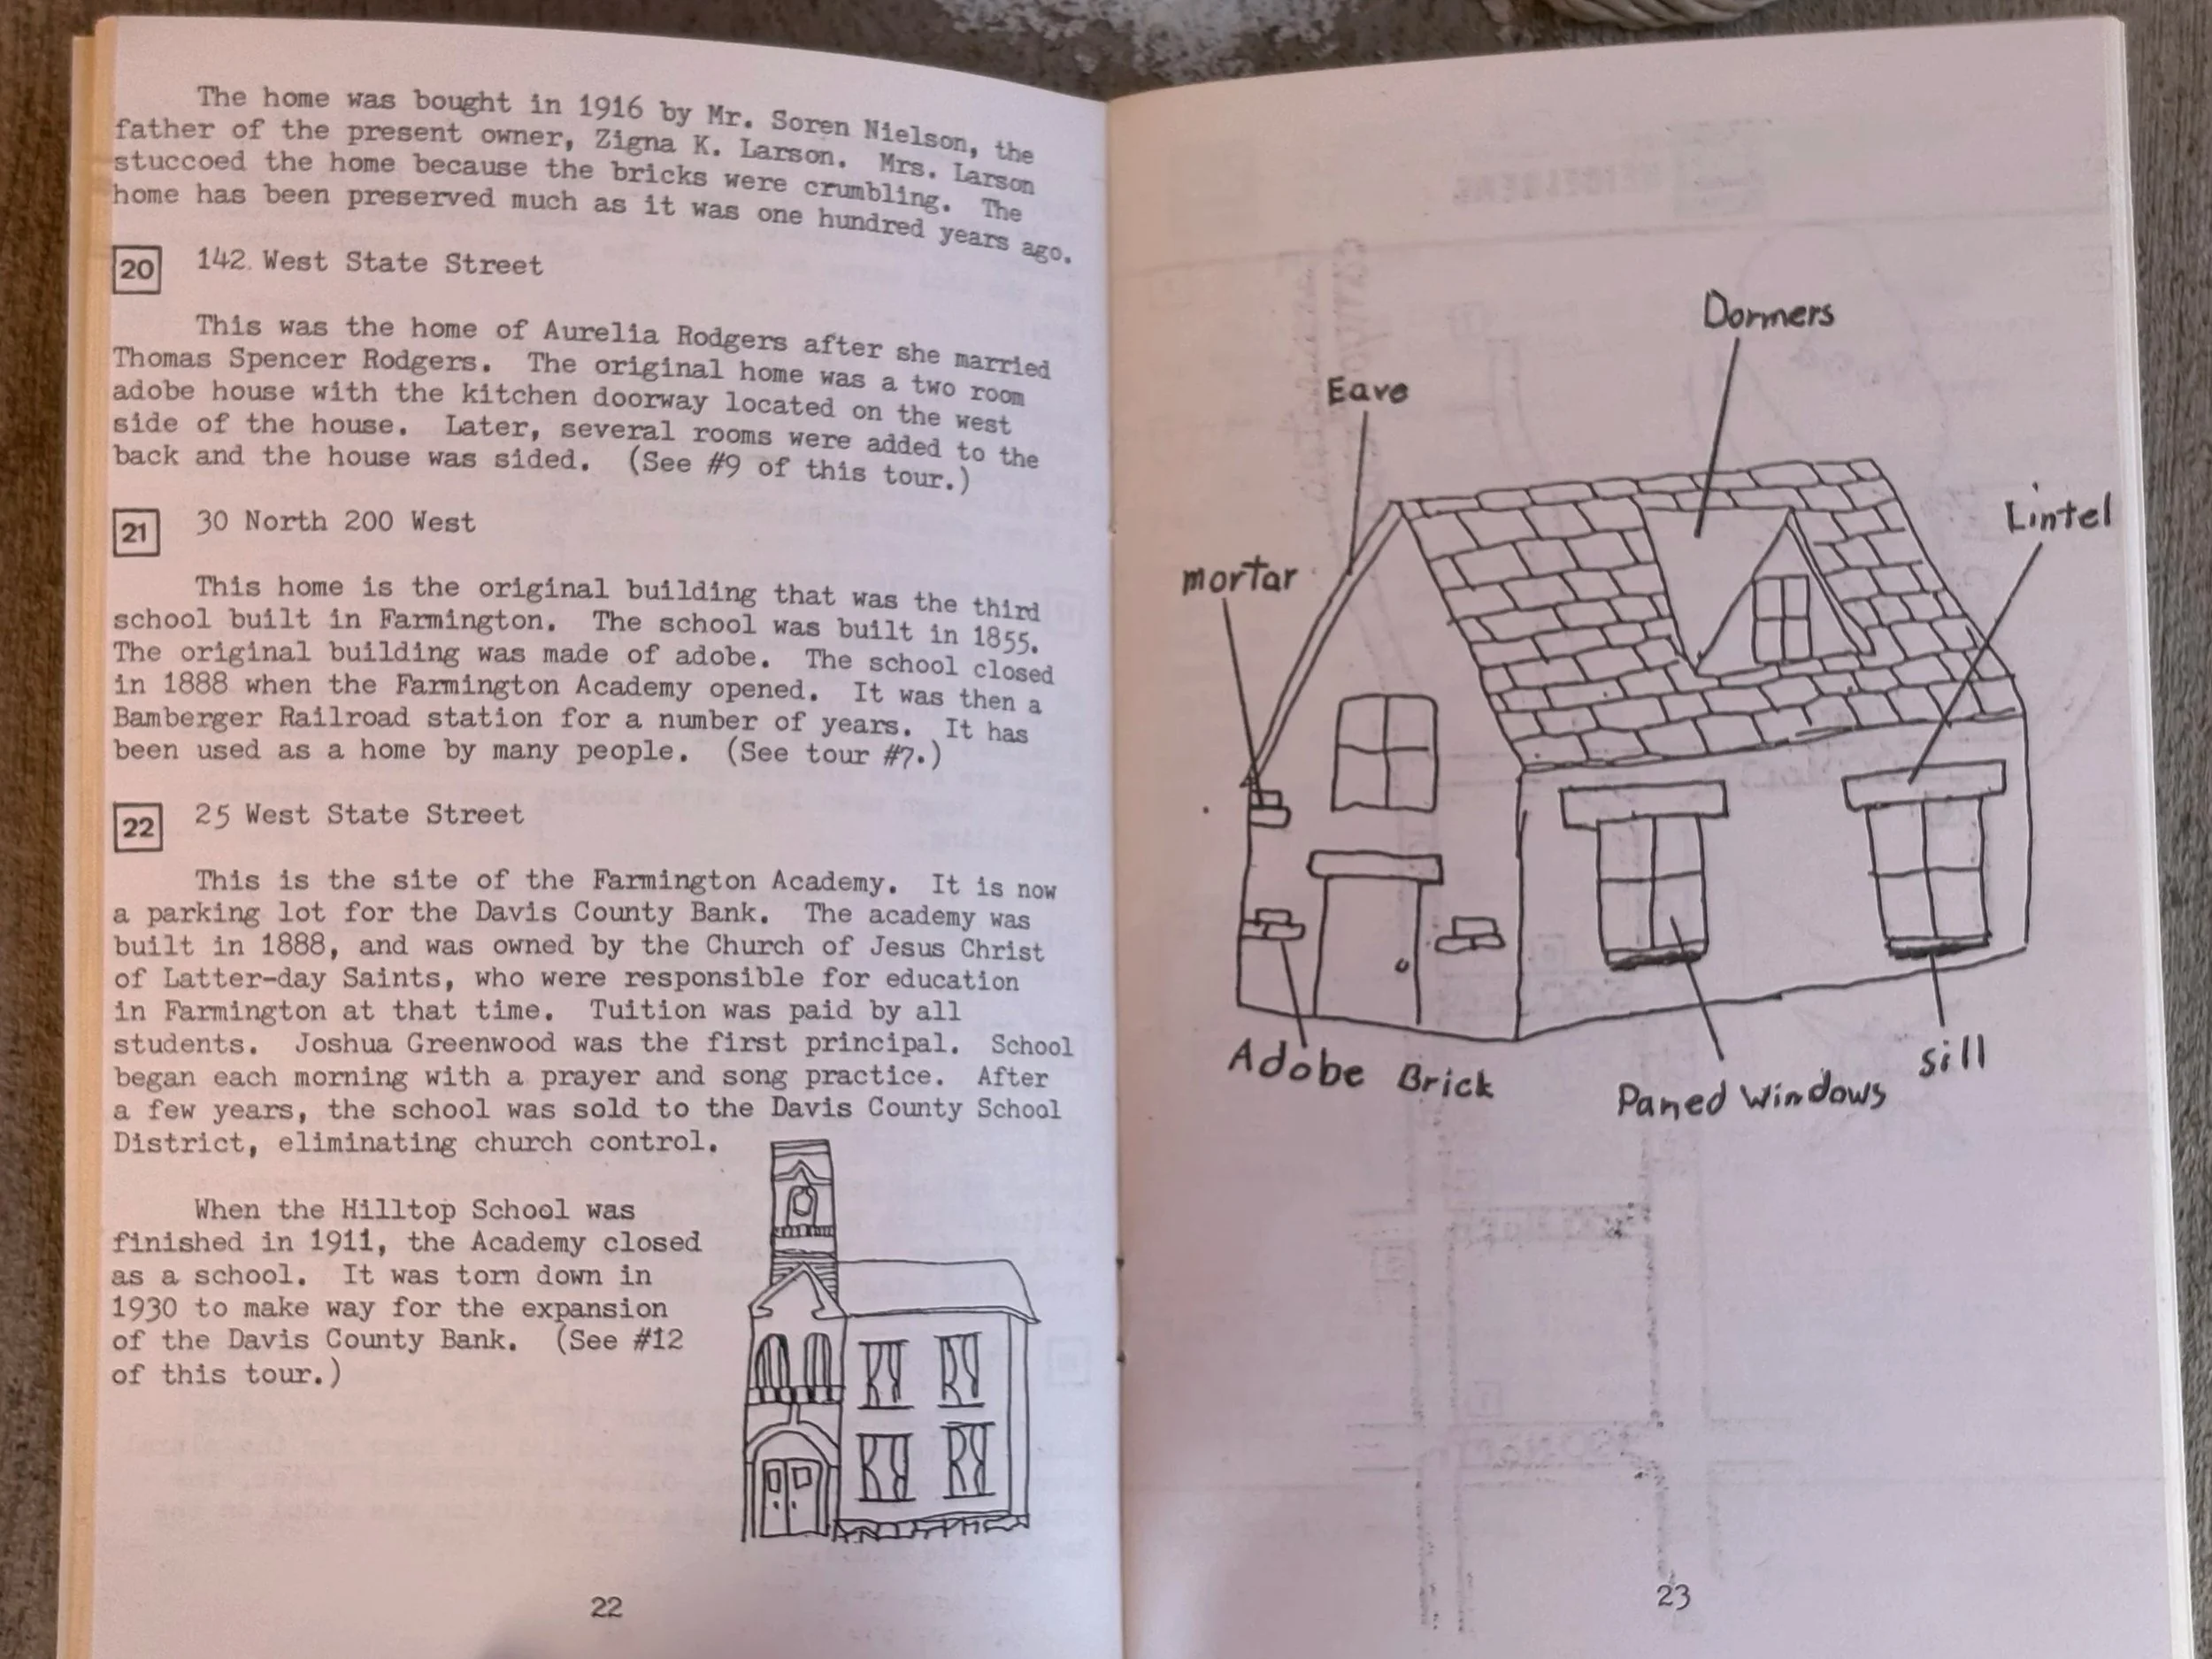 The home was bought in 1916 by Mr. Soren Nielson, the
father of the present owner, Zigna K. Larson. Mrs. Larson
stuccoed the home because the bricks were crumbling. The
home has been preserved much as it was one hundred years ago.
20 142 West State Street
This was the home of Aurelia Rodgers after she married
Thomas Spencer Rodgers. The original home was a two room
adobe house with the kitchen doorway located on the west
side of the house. Later, several rooms were added to the
back and the house was sided. (See #9 of this tour.)
21 30 North 200 West
This home is the original building that was the third
school built in Farmington. The school was built in 1855.
The original building was made of adobe. The school closed
in 1888 when the Farmington Academy opened. It was then a
Bamberger Railroad station for a number of years. It has
been used as a home by many people. (See tour #7.)
22 25 West State Street
This is the site of the Farmington Academy. It is now
a parking lot for the Davis County Bank. The academy was
built in 1888, and was owned by the Church of Jesus Christ
of Latter-day Saints, who were responsible for education
in Farmington at that time. Tuition was paid by all
students. Joshua Greenwood was the first principal. School
began each morning with a prayer and song practice. After
a few years, the school was sold to the Davis County School
District, eliminating church control.
When the Hilltop School was
finished in 1911, the Academy closed
as a school. It was torn down in
1930 to make way for the expansion
of the Davis County Bank. (See #12
of this tour.)
22
Dormers
Eave
Lintel
mortar
Adobe Brick
Paned Windows
sill
23